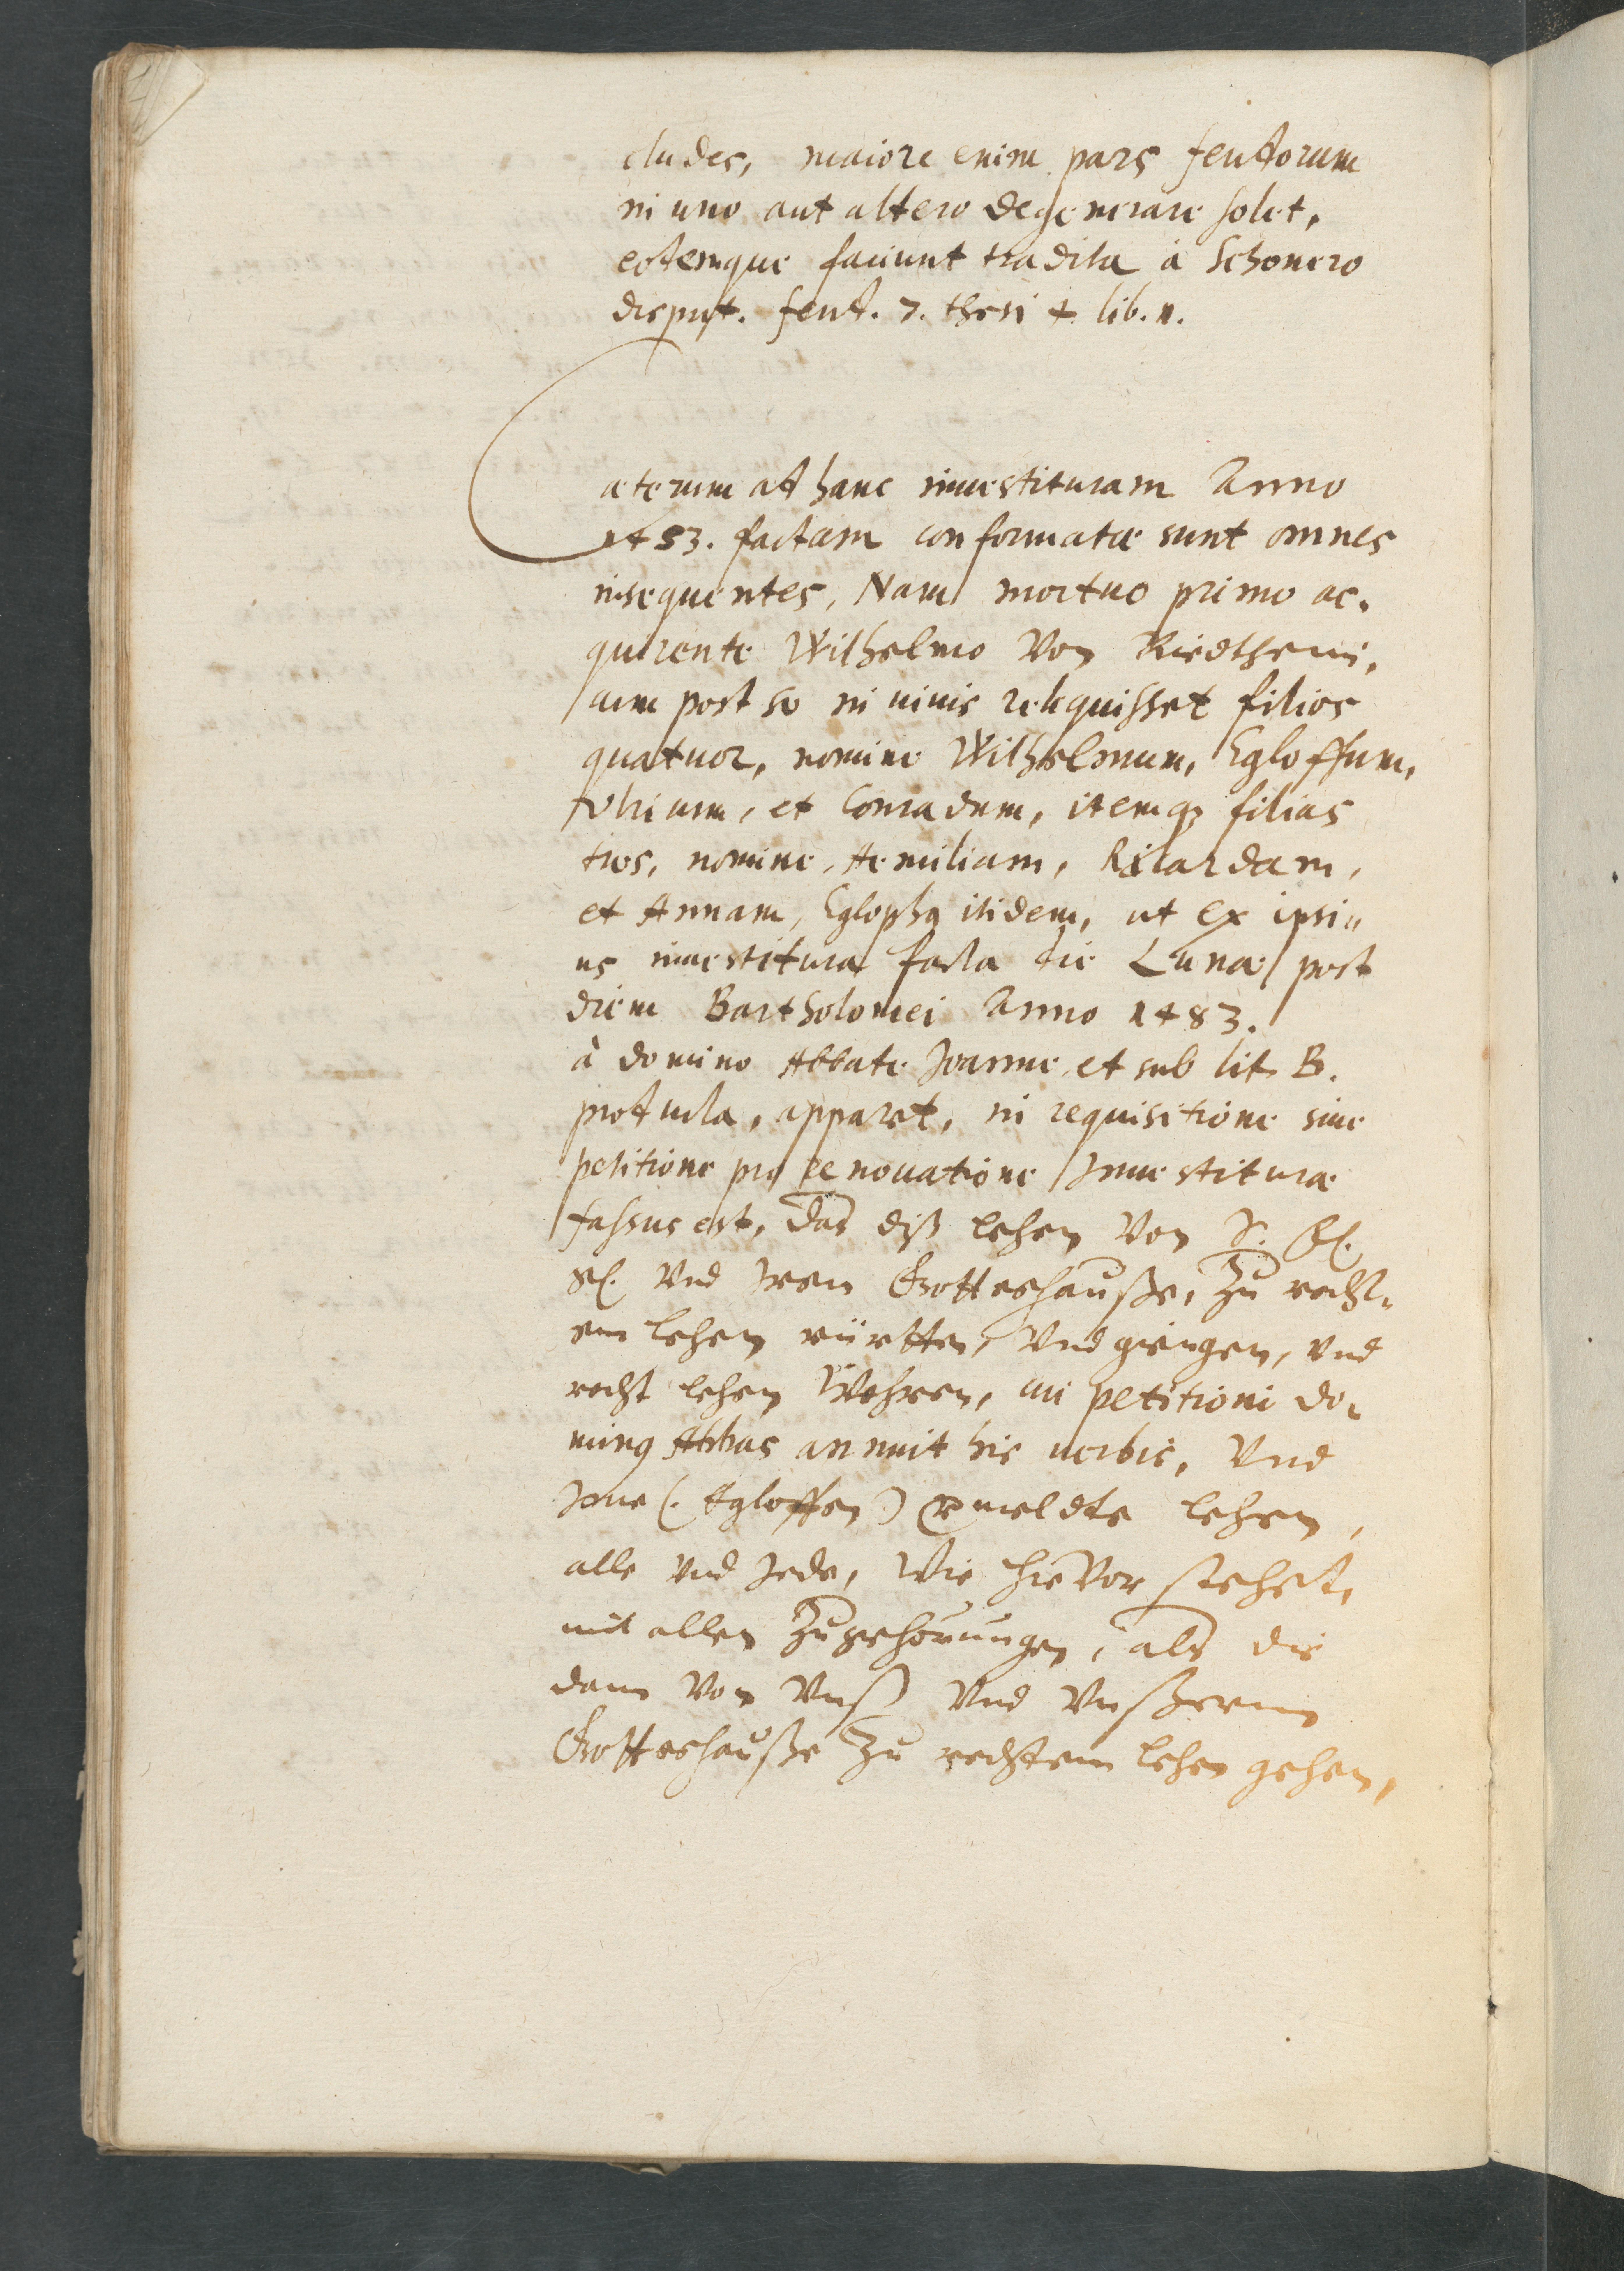 cludes, maiore enim pars feudorum
in uno aut altero degenerare solet,
eodemque faciunt tradita à Schonero
disput. feud. 7. thesi 4. lib. n.
Cæterum ad hanc inuestituram Anno
1453. factam conformatæ sunt omnes
insequentes, Nam mortuo primo ac-
quirente Wilhelmo Von Riedtheim,
cum post se in viuis reliquisset filios
quatuor, nomine Wilhelmum, Egloffum,
Vlricum, et Conradum, itemq3 filias
tres, nomine, Aemiliam, Rilardam,
et Annam, Eglophq itidem, ut ex ipsi-
us inuestitura facta die Lunæ post
diem Bartholomei Anno 1483.
à domino Abbate Joanne, et sub lit. B.
producta, apparet, in requisitione siue
petitione pro renouatione Jnuestituræ
fassus est, das diß lehen Von J. G.
Vnd Jrem Gotteshauße, Zu recht-
em lehen rürtten, Vnd giengen, Vnd
recht lehen Wehren, cui petitioni do-
minq Abbas annuit his uerbis, Vnd
Jme (. Egloffen) ermeldte lehen,
alle Vnd Jede, Wie hieVor stehet,
mit allen Zugehörungen, als die
dann Von Vnß Vnd Vnßerm
Gotteshauße Zu rechtem lehen gehen,